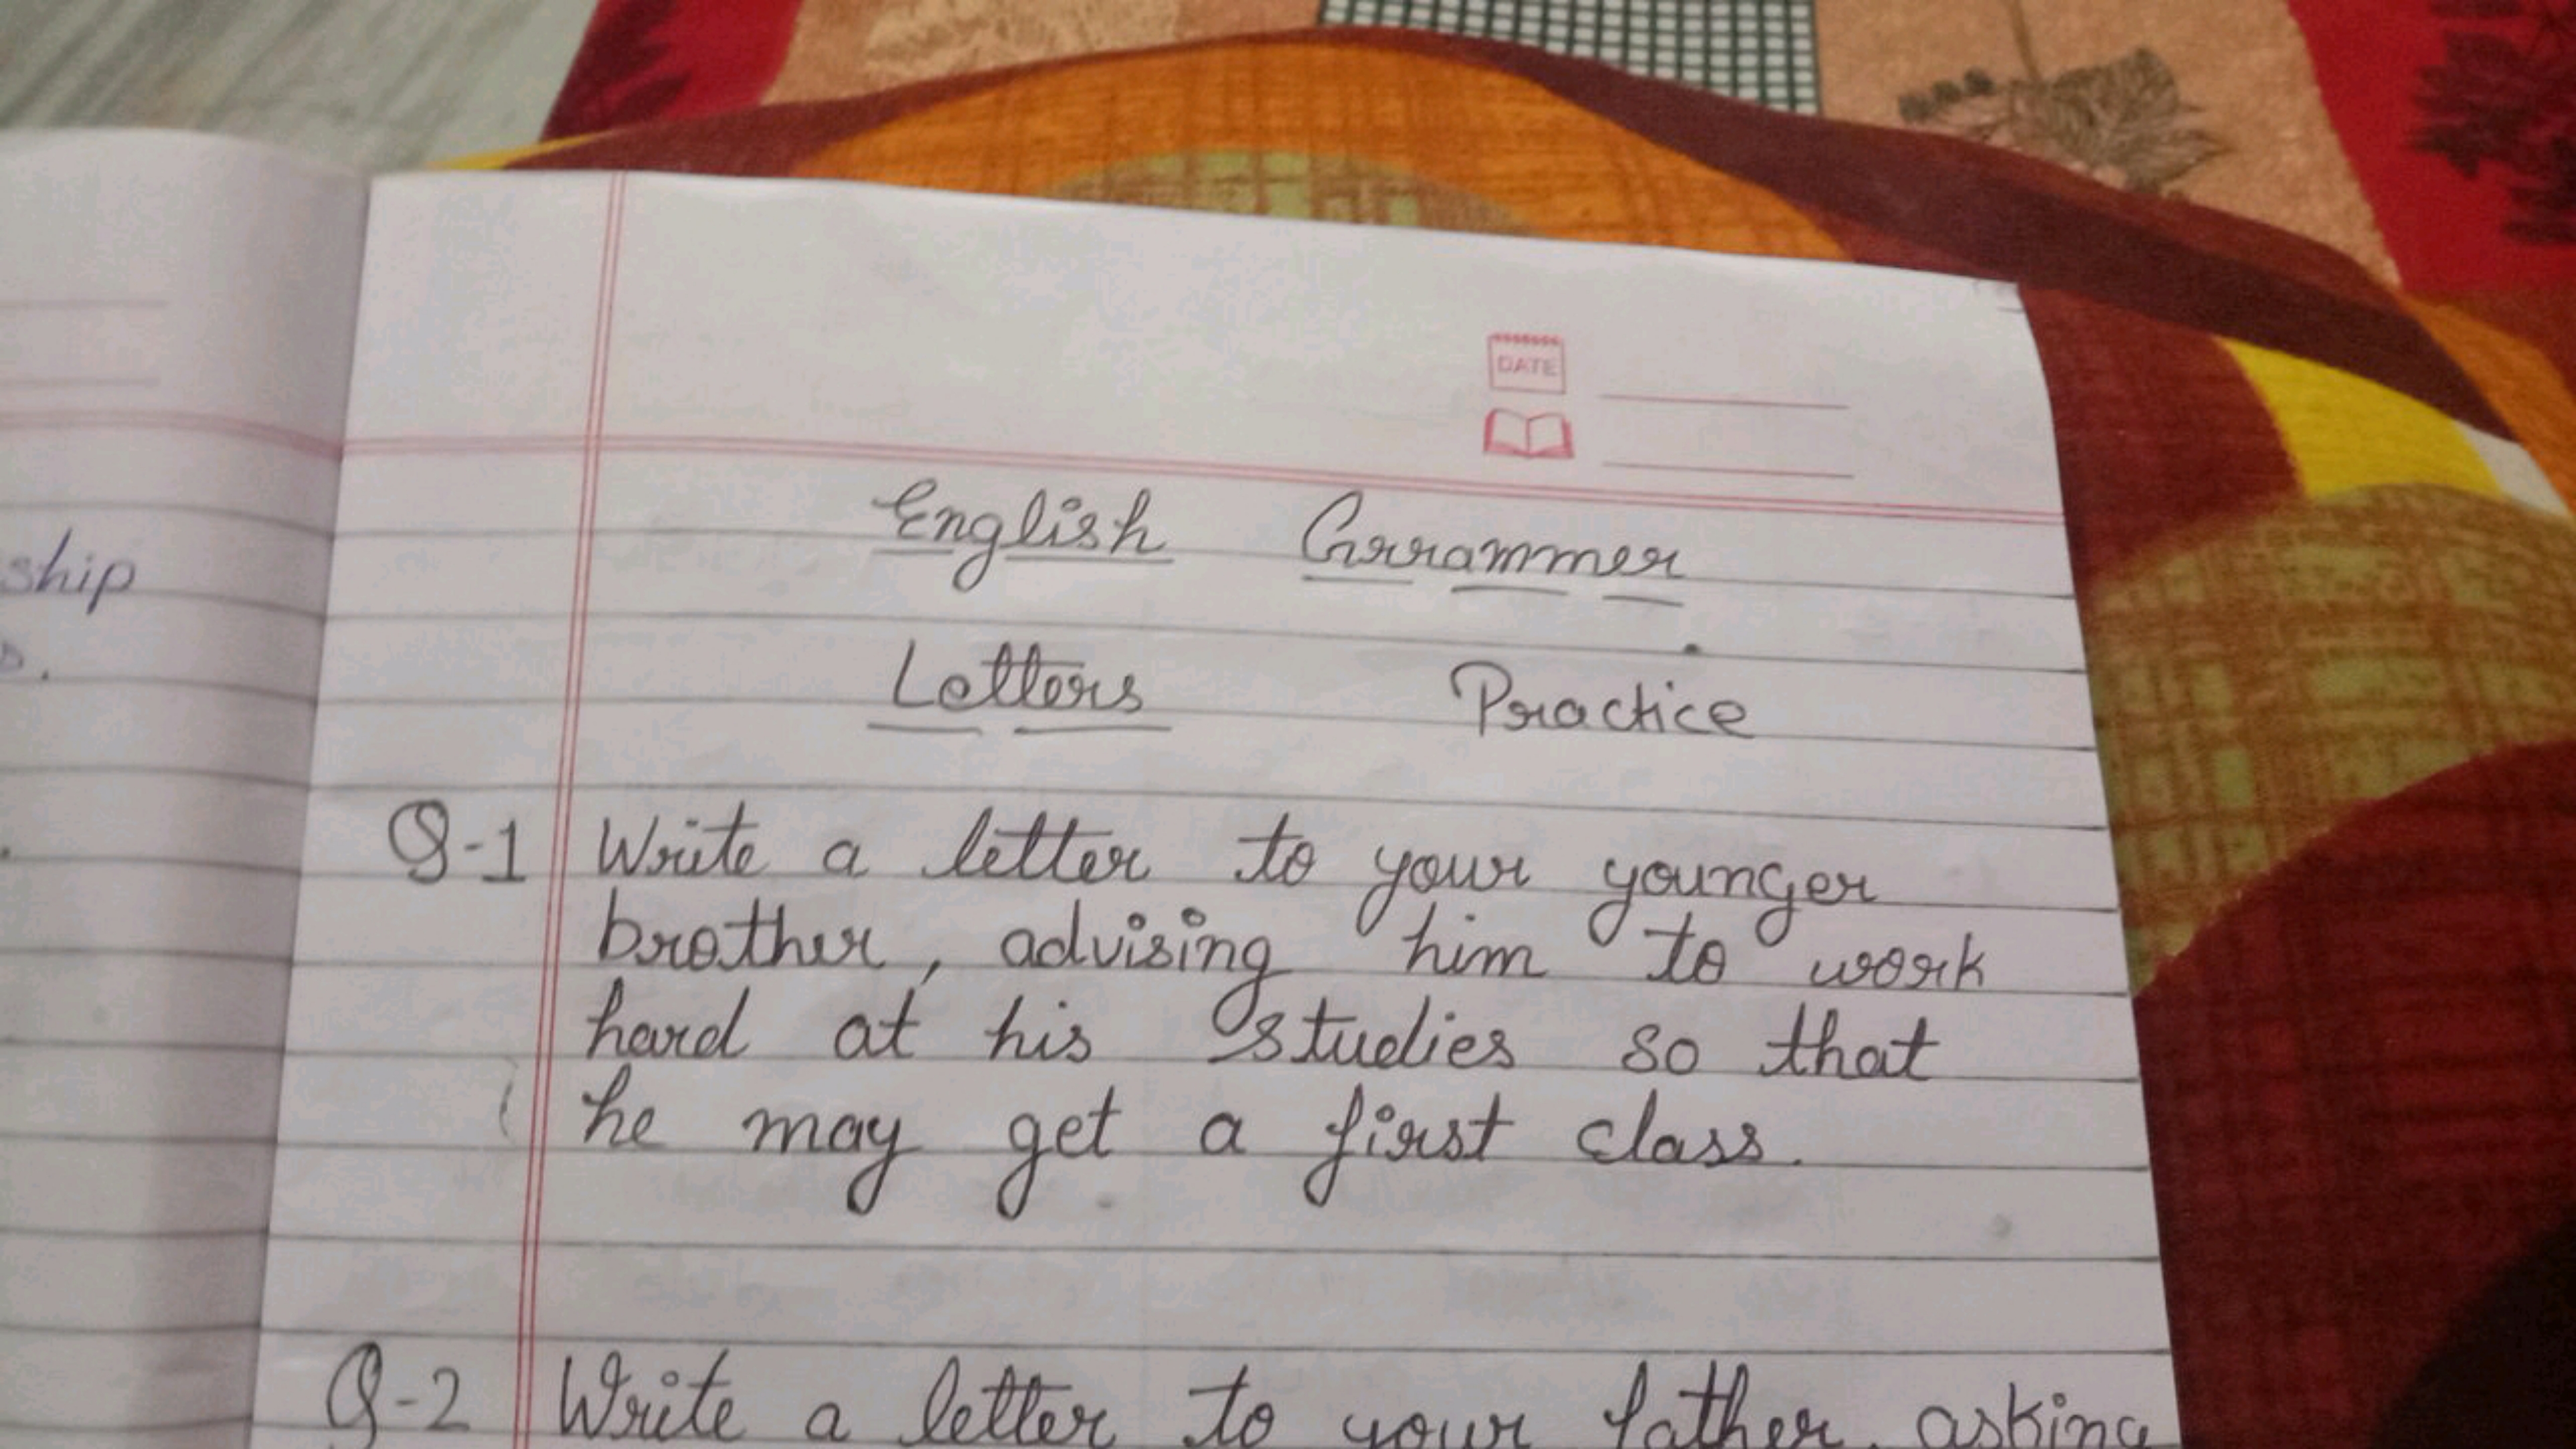 ship
DATE
English Grrammer
Letters Practice
Q-1 Write a letter to your younger
brother, advising him to work
hard at his studies so that
he may get a first class.
Q-2 Write a letter to your father, asking